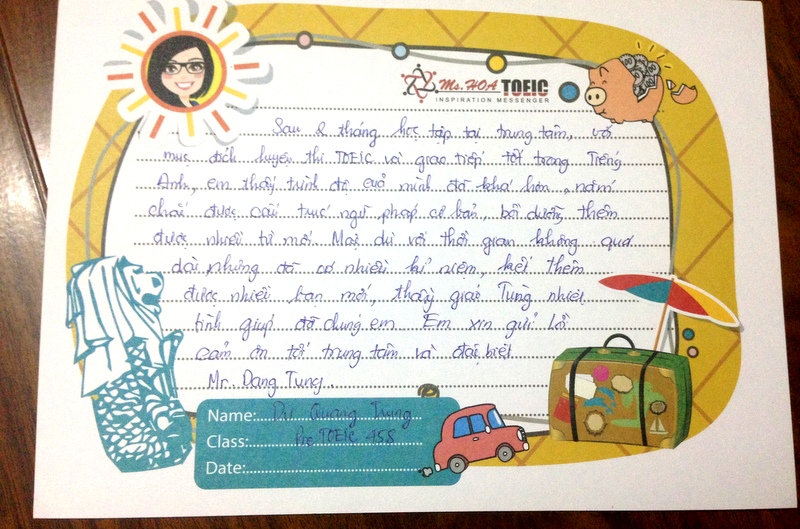 Ms. HOA TOEIC
INSPIRATION MESSENGER
Sau 2 tháng học tập tại trung tâm, với
mục đích luyện thi TOEIC và giao tiếp tốt trong Tiếng
Anh, em thấy trình độ của mình đã khá hơn, nắm
chắc được cấu trúc ngữ pháp cơ bản, bồi dưỡng thêm
được nhiều từ mới. Mặc dù với thời gian không quá
dài, nhưng đã có nhiều kỉ niệm, kết thêm
được nhiều bạn mới, thầy giáo Tùng nhiệt
tình giúp đỡ chúng em. Em xin gửi lời
cảm ơn tới trung tâm và đặc biệt
Mr. Dang Tung.
Name: Quang Trung
Class: Pre TOEIC 458
Date: